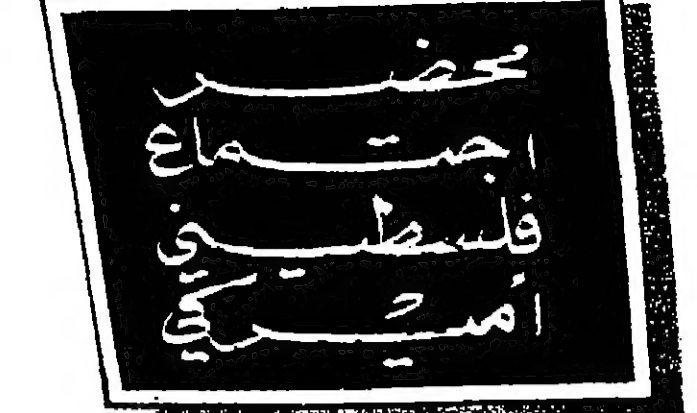 محضر
اجتماع
فلسطيني
أميركي